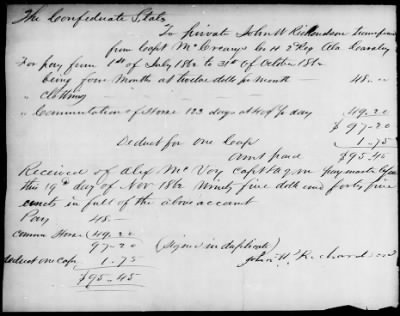 The Confederate States
To Private John W Richardson
from Capt McCreary Co H 2 Reg Ala Cavalry
For pay from 1st of July 1862 to 31st of October 1862
being four Months at twelve dolls pr month — 48.00
" Clothing
" Commutation of Horse 123 days at 40 cts pr day 49.20
$97.20
Deduct for one Cap 1.75
Amt paid $95.45
Received of Alex McVoy Capt & A.Q.M.
this 19th day of Nov 1862 Ninety five dolls and forty five
cents in full of the above account
Pay 48.—
Commu Horse 49.20
97.20 (Signed in duplicate)
Deduct one cap 1.75
$95.45
John W Richardson